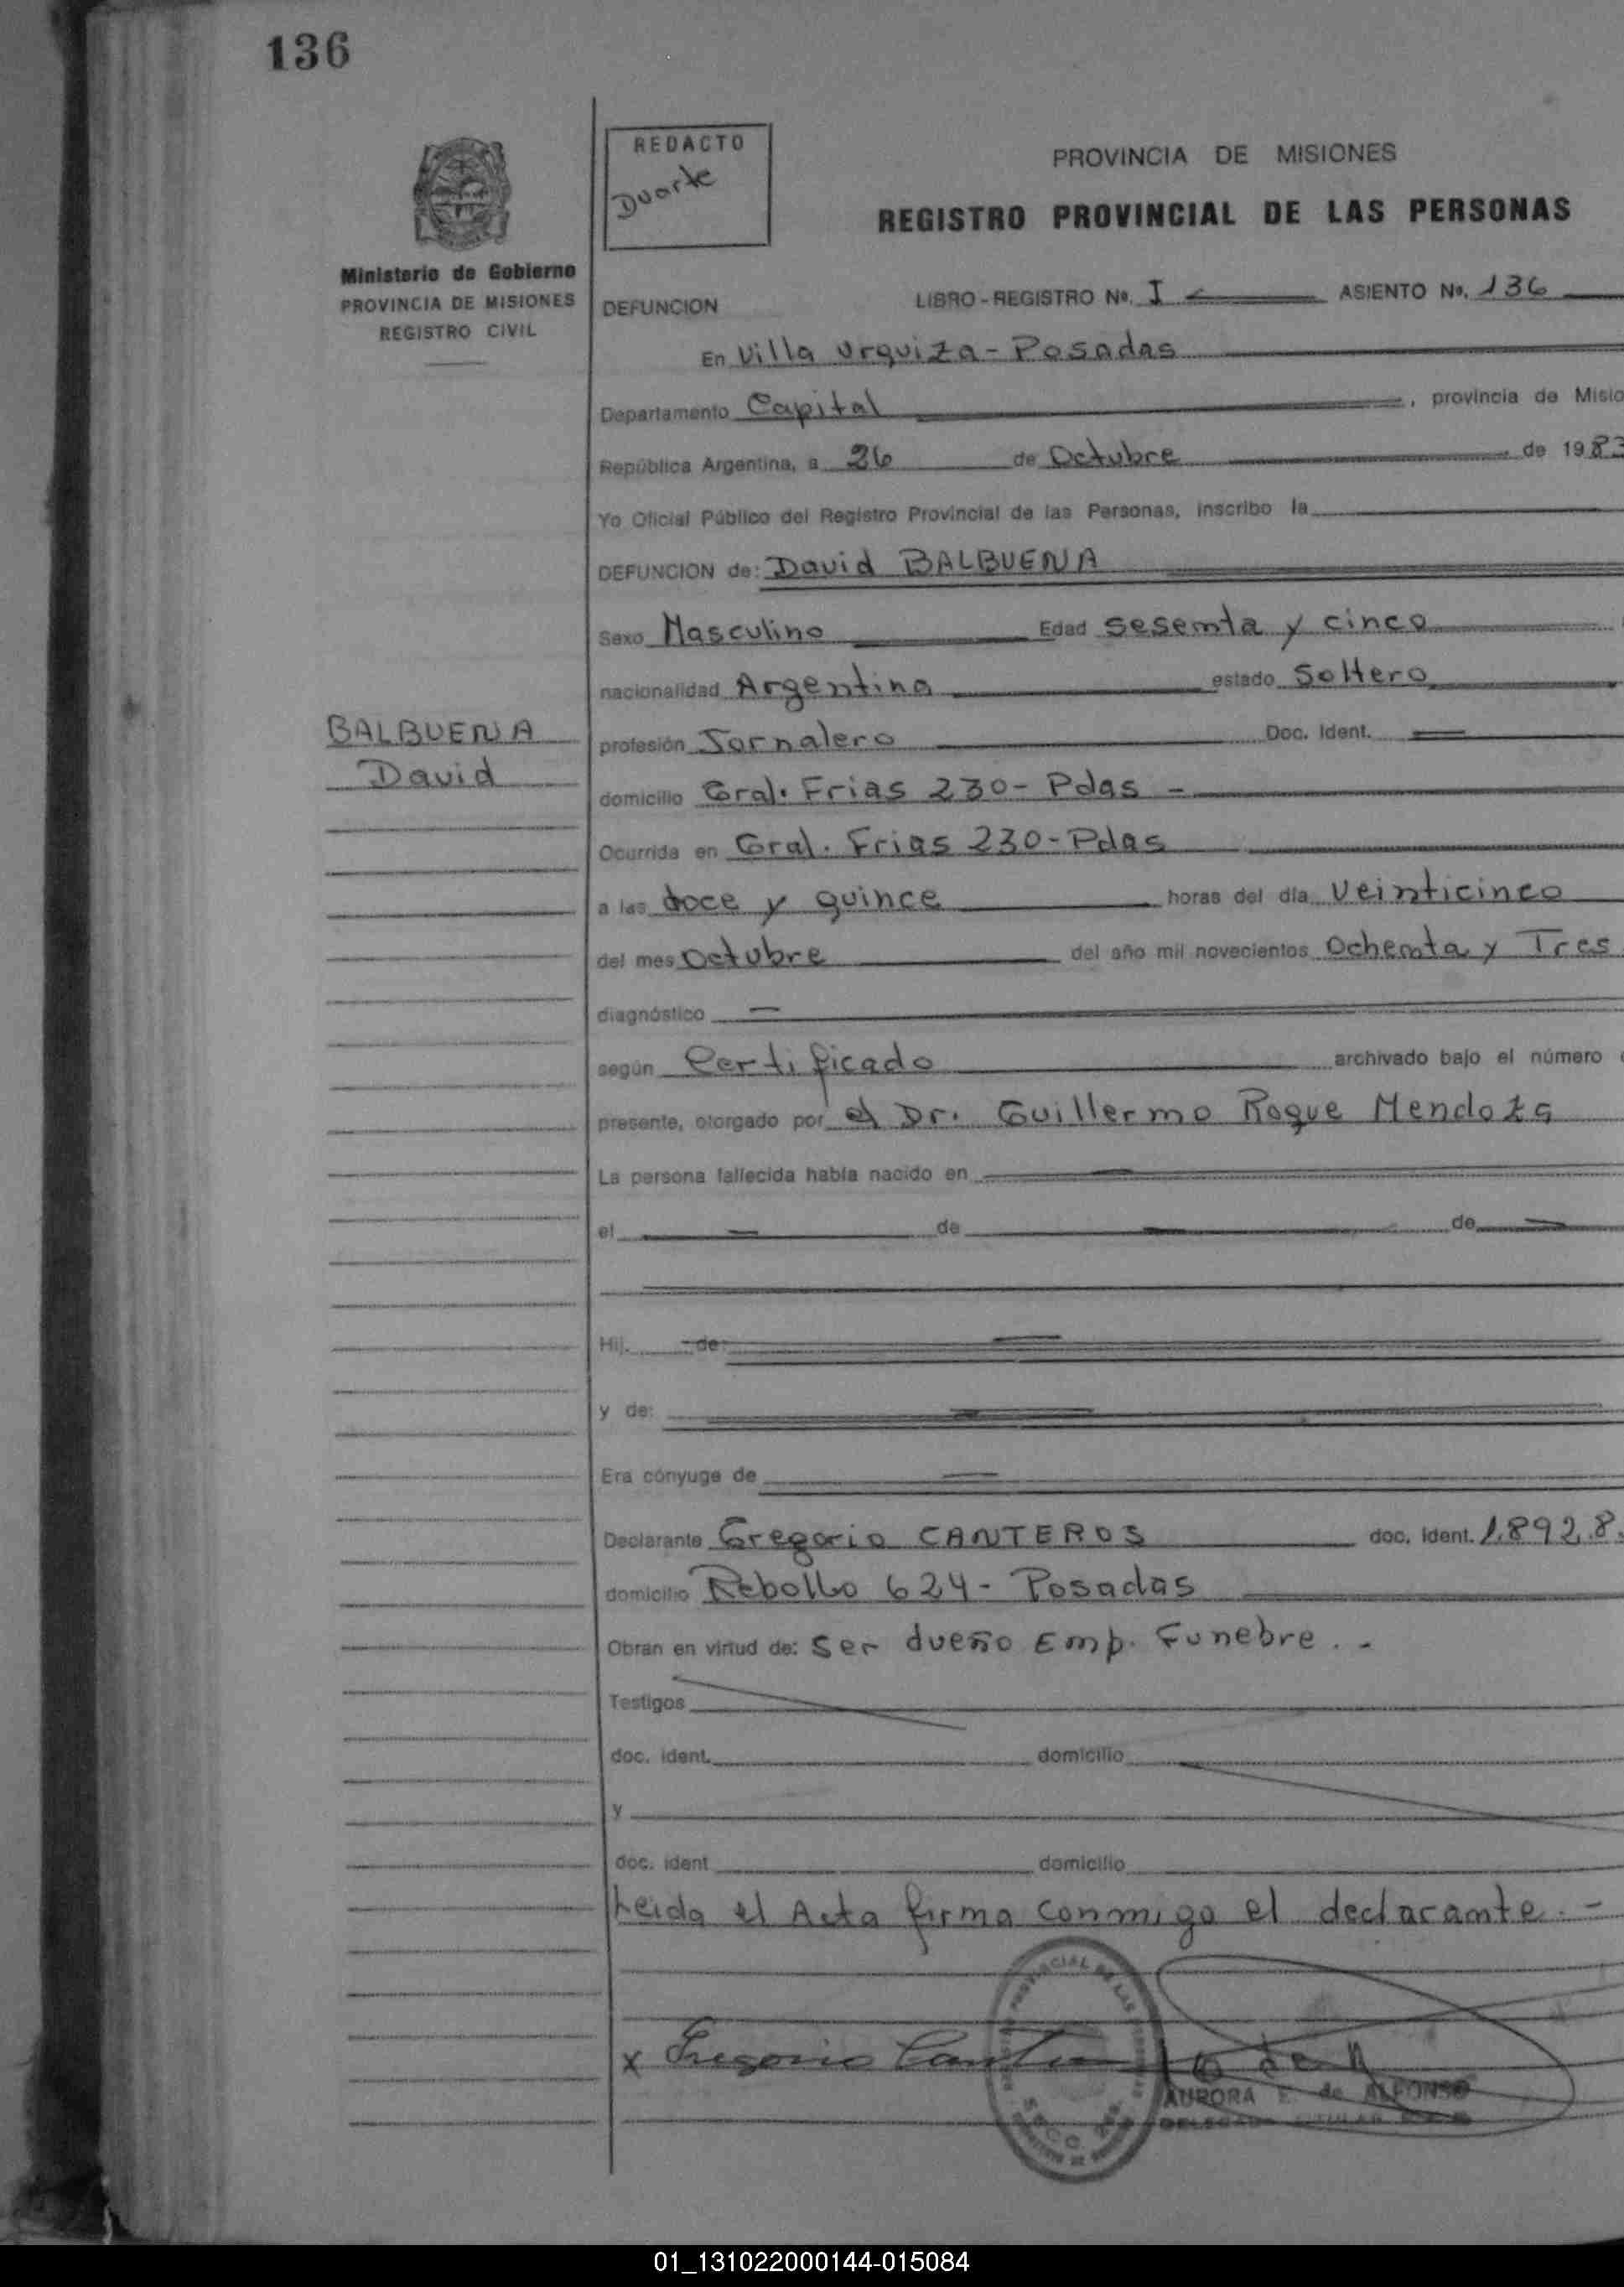 136
REDACTO
Duarte
PROVINCIA DE MISIONES
REGISTRO PROVINCIAL DE LAS PERSONAS
Ministerio de Gobierno
PROVINCIA DE MISIONES
REGISTRO CIVIL
DEFUNCION LIBRO-REGISTRO Nº. I ASIENTO Nº. 136
En Villa Urquiza - Posadas
Departamento Capital, provincia de Misio
República Argentina, a 26 de Octubre de 1983
Yo Oficial Público del Registro Provincial de las Personas, inscribo la
DEFUNCION de: David BALBUENA
Sexo Masculino Edad sesenta y cinco
nacionalidad Argentina estado Soltero
BALBUENA
David
profesión Jornalero Doc. Ident. —
domicilio Gral. Frias 230 - Pdas -
Ocurrida en Gral. Frias 230 - Pdas
a las doce y quince horas del día veinticinco
del mes Octubre del año mil novecientos Ochenta y Tres
diagnóstico —
según Certificado archivado bajo el número
presente, otorgado por el Dr. Guillermo Roque Mendoza
La persona fallecida había nacido en —
el — de — de —
Hij. - de: —
y de: —
Era cónyuge de —
Declarante Gregorio CANTEROS doc. ident. 1.892.8
domicilio Rebollo 624 - Posadas
Obran en virtud de: Ser dueño Emp. Funebre . -
Testigos
doc. ident. domicilio
y
doc. ident domicilio
Leida el Acta firma conmigo el declarante. -
x Gregorio
AURORA de ALFONSO
01_131022000144-015084